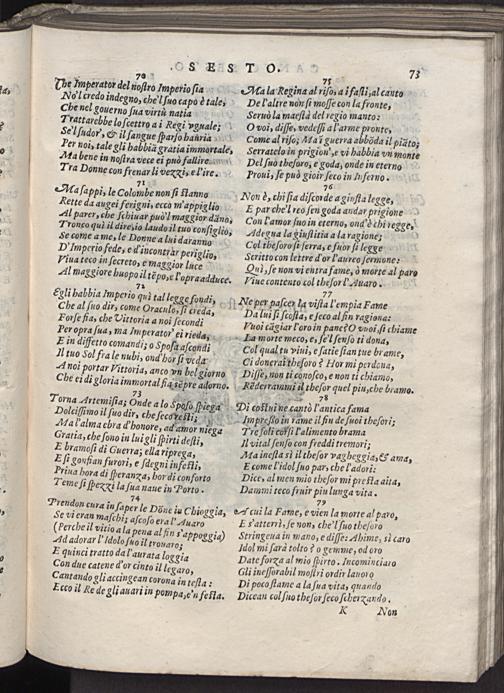 SESTO.
73
70
Che Imperator del nostro Imperio sia
No'l credo indegno, che'l suo capo è tale,
Che nel governo sua virtù natia
Trattarebbe lo scettro a i Regi vguale;
Se'l sudor', & il sangue sparso hauria
Per noi, tale gli habbia gratia immortale,
Ma bene in nostra vece ei può fallire
Tra Donne con frenar li vezzi, e l'ire.
71
Ma sappi, le Colombe non si stanno
Rette da augei ferigni, ecco m'appiglio
Al parer, che schiuar può'l maggior dāno,
Tronco quì il dire, io laudo il tuo consiglio,
Se come a me, le Donne a lui daranno
D'Imperio sede, e d'incontrar periglio,
Viua teco in secreto, e maggior luce
Al maggiore huopo il tēpo, e l'opra adduce.
72
Egli habbia Imperio quì tal legge fondi,
Che al suo dir, come Oracolo, si creda,
Forse fia, che Vittoria a noi secondi
Per opra sua, ma Imperator' ei rieda,
E in diffetto comandi; o Sposa ascondi
Il tuo Sol fra le nubi, ond'hor si veda
A noi portar Vittoria, anco vn bel giorno
Che ci di gloria immortal fia sēpre adorno.
73
Torna Artemisia; Onde a lo Sposo spiega
Dolcissimo il suo dir, che seco resti;
Ma l'alma ebra d'honore, ad amor niega
Gratia, che sono in lui gli spirti desti,
E bramosi di Guerra; ella riprega,
E si gonfian furori, e sdegni infesti,
Priua hora di speranza, hor di conforto
Teme si spezzi la sua naue in Porto.
74
Prendon cura in saper le Dōne in Chioggia,
Se vi eran maschi; ascoso era l'Auaro
(Perche il vitio a la pena al fin s'appoggia)
Ad adorar l'Idolo suo il trouaro;
E quinci tratto da l'aurata loggia
Con due catene d'or cinto il legaro,
Cantando gli accingean corona in testa:
Ecco il Re de gli auari in pompa, e'n festa.
75
Ma la Regina al riso, a i fasti, al canto
De l'altre non si mosse con la fronte,
Seruò la maestà del regio manto:
O voi, disse, vedessi al'arme pronte,
Come al riso; Ma i guerra abbōda il piāto;
Serratelo in prigion', e vi habbia vn monte
Del suo thesoro, e goda, onde in eterno
Proui, se può gioir seco in Inferno.
76
Non è, chi sia discorde a giusta legge,
E par che'l reo sen goda andar prigione
Con l'amor suo in eterno, ond'è chi regge,
Adegua la giustitia a la ragione;
Col thesoro si serra, e fuor si legge
Scritto con lettre d'or l'aureo sermone:
Quì, se non vi entra fame, ò morte al paro
Viue contento col thesor l'Auaro.
77
Ne per pascer la vista l'empia Fame
Da lui si scosta, e seco al fin ragiona:
Vuoi cāgiar l'oro in pane? O vuoi si chiame
La morte meco, e, se'l senso ti dona,
Col qual tu viui, e satie stan tue brame,
Ci donerai thesoro? Hor mi perdona,
Disse, non ti conosco, e non ti chiamo,
Rēderrammi il thesor quel piu, che bramo.
78
Di costui ne cantò l'antica fama
Impresso in rame il fin de suoi thesori;
Tre soli corsi l'alimento brama
Il vital senso con freddi tremori;
Ma in està sì il thesor vagheggia, & ama,
E come l'idol suo par, che l'adori:
Dice, al men mio thesor mi presta aita,
Dammi teco fruir piu lunga vita.
79
A cui la Fame, e vien la morte al paro,
E s'atterrì, se non, che'l suo thesoro
Stringeua in mano, e disse: Ahime, sì caro
Idol mi sarà tolto? o gemme, od oro
Date forza al mio spirto. Incominciaro
Gli inessorabil mostri ordir lauoro
Di poco stame a la sua vita, quando
Dicean col suo thesor seco scherzando.
K Non